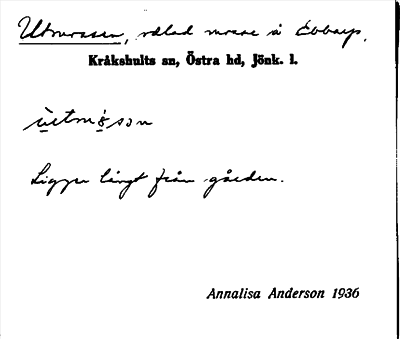 Utmossen, odlad mosse i Ebbarp.
Kråkshults sn, Östra hd, Jönk. l.
ùtmó̱son
Ligger långt från gården.
Annalisa Anderson 1936